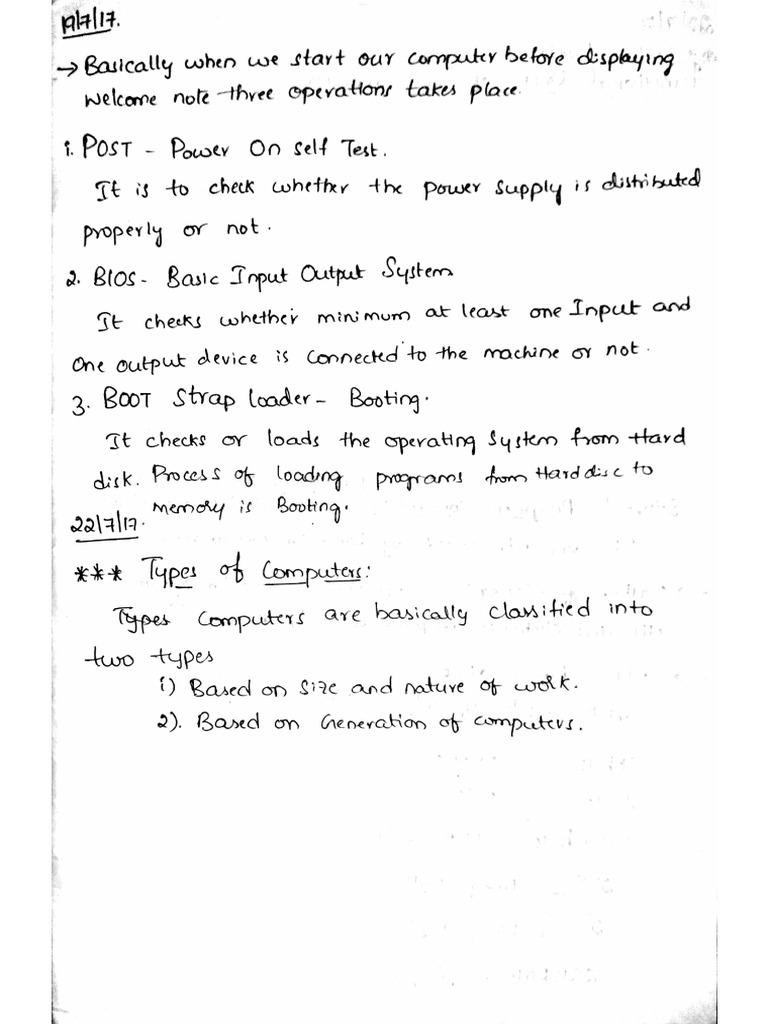 19/7/17.
→ Basically when we start our computer before displaying
welcome note three operations takes place.
1. POST - Power On self Test.
It is to check whether the power supply is distributed
properly or not.
2. BIOS - Basic Input Output System
It checks whether minimum at least one Input and
One output device is connected to the machine or not.
3. BOOT Strap loader - Booting.
It checks or loads the operating system from Hard
disk. Process of loading programs from Hard disc to
memory is Booting.
22/7/17.
*** Types of Computers:
Types Computers are basically classified into
two types
1) Based on size and nature of work.
2). Based on Generation of computers.